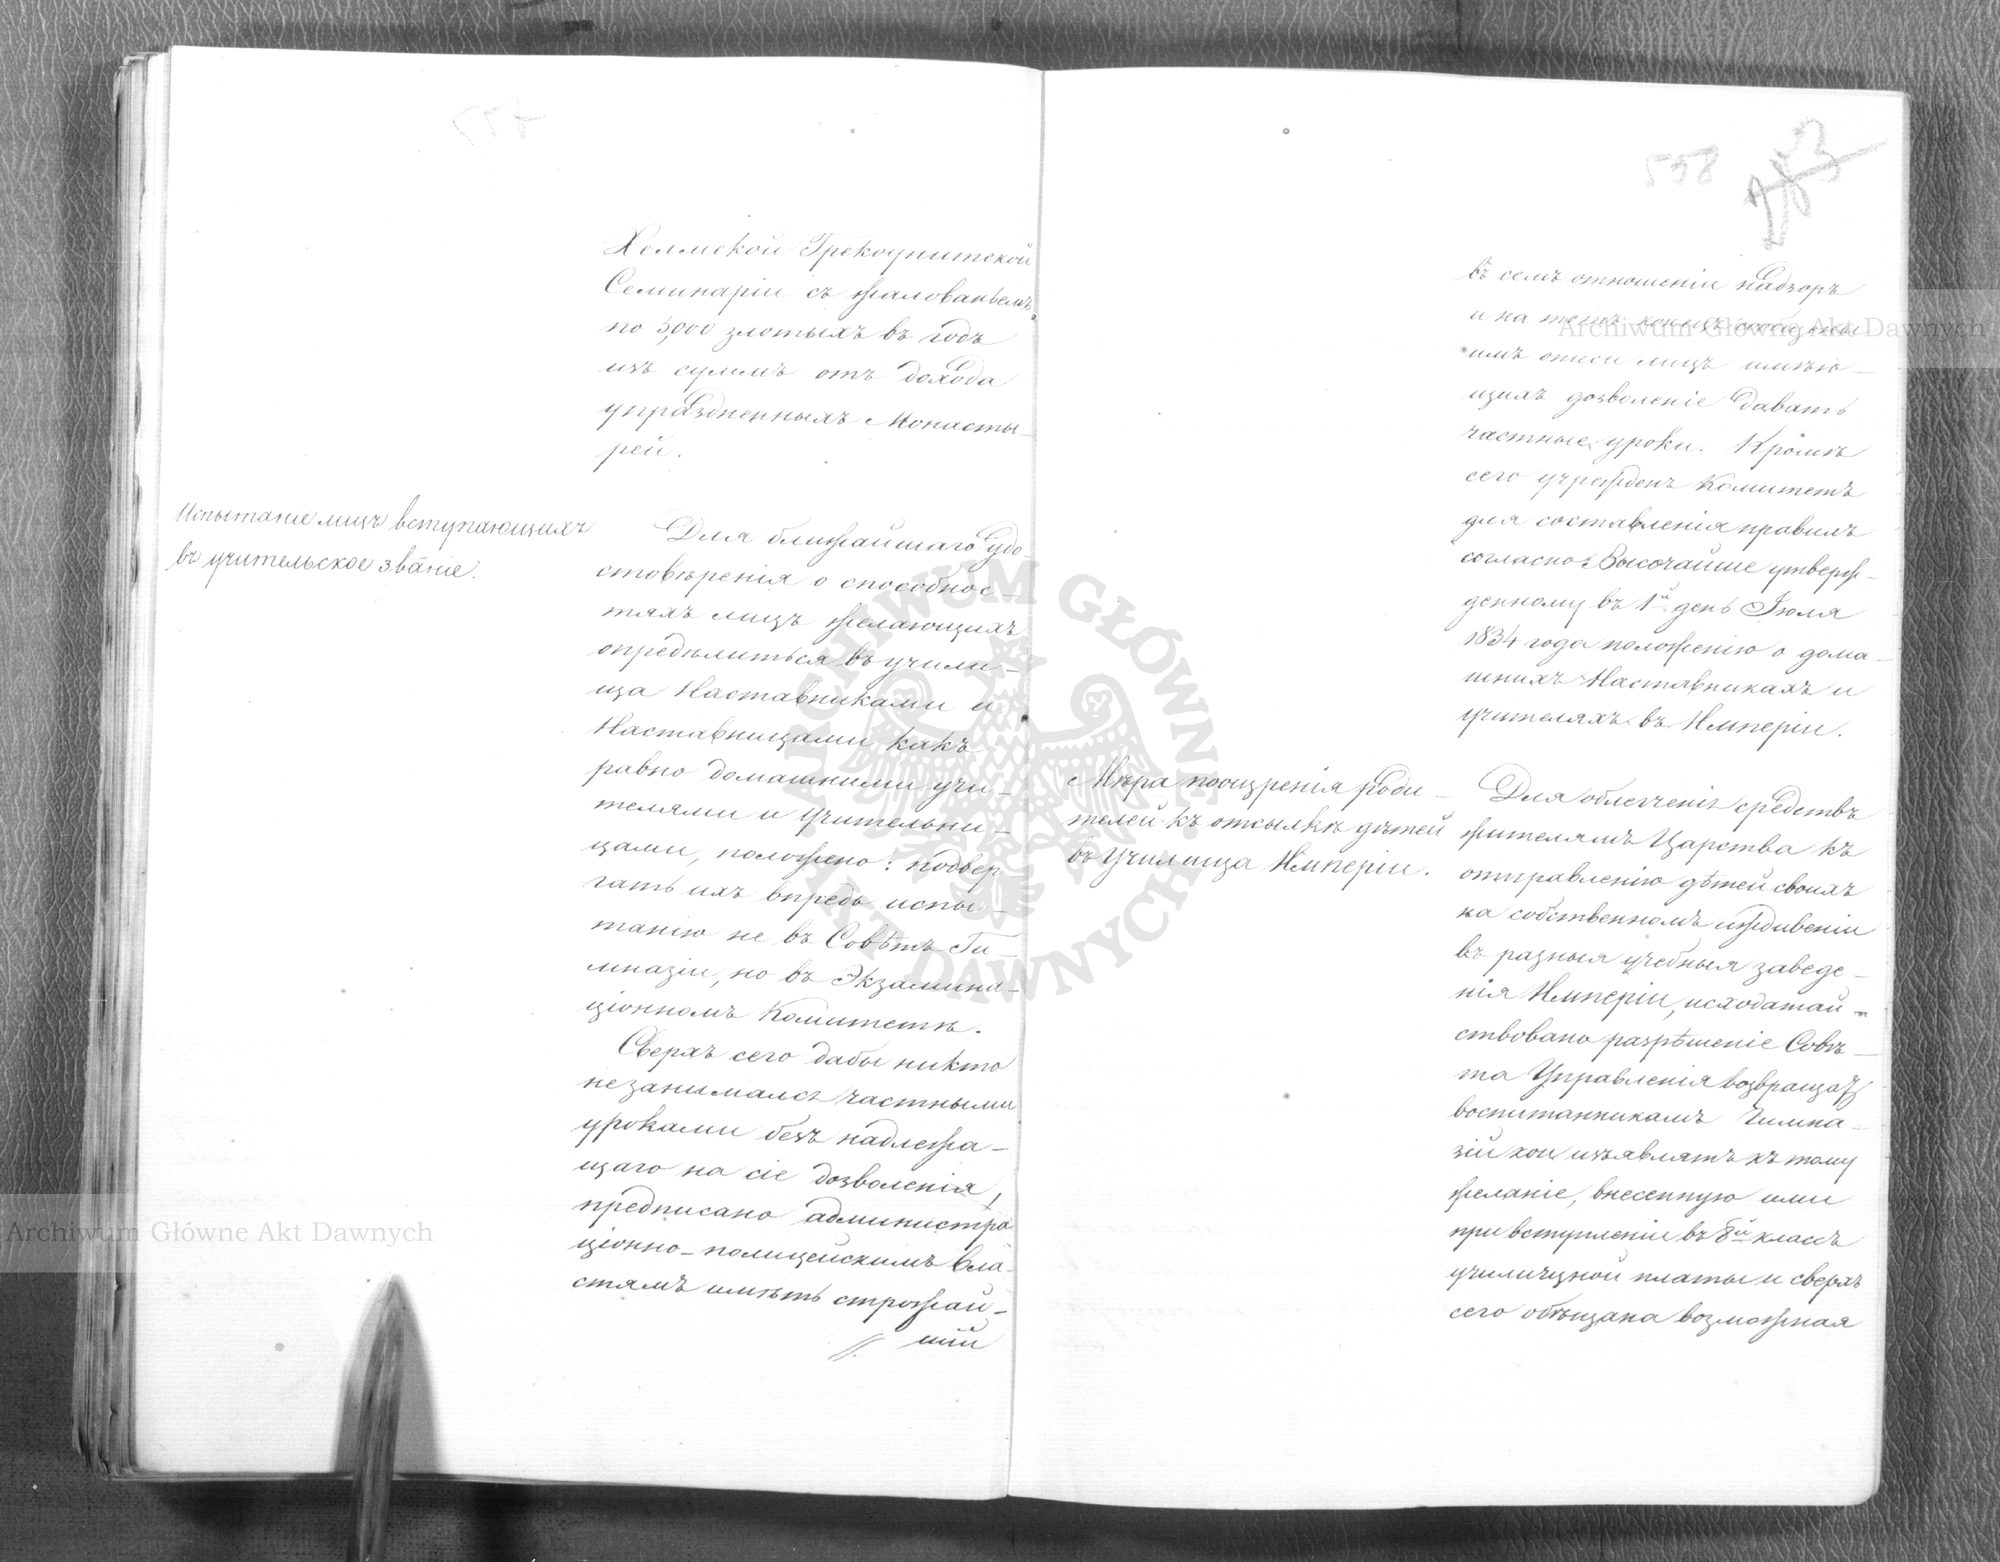 557
Хелмской Грекоунитской
Семинаріи съ жалованьемъ
по 5,000 злотыхъ въ годъ
изъ суммъ отъ дохода
упраздненныхъ Монасты-
рей.
Испытаніе лицъ вступающихъ
въ учительское званіе.
Для ближайшаго удо-
стовѣренія о способнос-
тяхъ лицъ желающихъ
опредѣлиться въ учили-
ща Наставниками и
Наставницами какъ
равно домашними учи-
телями и учительни-
цами, положено: подвер-
гать ихъ впредь испы-
танію не въ Совѣтѣ Ги-
мназіи, но въ Экзамина-
ціонномъ Комитетѣ.
Сверхъ сего дабы никто
не занимался частными
уроками безъ надлежа-
щаго на сіе дозволенія,
предписано администра
ціонно-полицейскимъ вла-
стямъ имѣть строжай-
шій
538
283
въ семъ отношеніи надзоръ
и на тотъ конецъ
имъ описи лицъ имѣю-
щихъ дозволеніе давать
частные уроки. Кромѣ
сего учрежденъ Комитетъ
для составленія правилъ
согласно Высочайше утверж-
денному въ 1й день Іюля
1834 года положенію о дома-
шнихъ Наставникахъ и
учителяхъ въ Имперіи.
Мѣра поощренія роди-
телей къ отсылкѣ дѣтей
въ Училища Имперіи.
Для облегченія средствъ
жителямъ Царства къ
отправленію дѣтей своихъ
на собственномъ иждивеніи
въ разныя учебныя заведе-
нія Имперіи, исходатай-
ствовано разрѣшеніе Совѣ-
та Управленія возвращать
воспитанникамъ Гимна-
зій кои изъявлятъ къ тому
желаніе, внесенную ими
при вступленіи въ 8й классъ
училищной платы и сверхъ
сего обѣщана возможная
Archiwum Główne Akt Dawnych
Archiwum Główne Akt Dawnych
ARCHIWUM GŁÓWNE AKT DAWNYCH